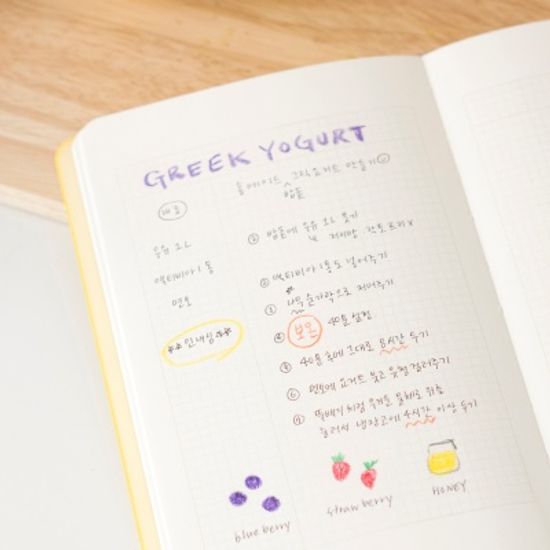 GREEK YOGURT
홈메이드 그릭요거트 만들기
밥솥
재료
우유 2L
액티비아 1통
면포
인내심
① 밥솥에 우유 2L 붓기
↳ 저지방, 락토프리 X
② 액티비아 1통도 넣어주기
③ 나무숟가락으로 저어주기
④ 보온 40분 설정
⑤ 40분 후에 그대로 8시간 두기
⑥ 면포에 요거트 붓고 유청 걸러주기
⑦ 무거운 물체로 위를
눌러서 냉장고에 4시간 이상 두기
blueberry
strawberry
HONEY